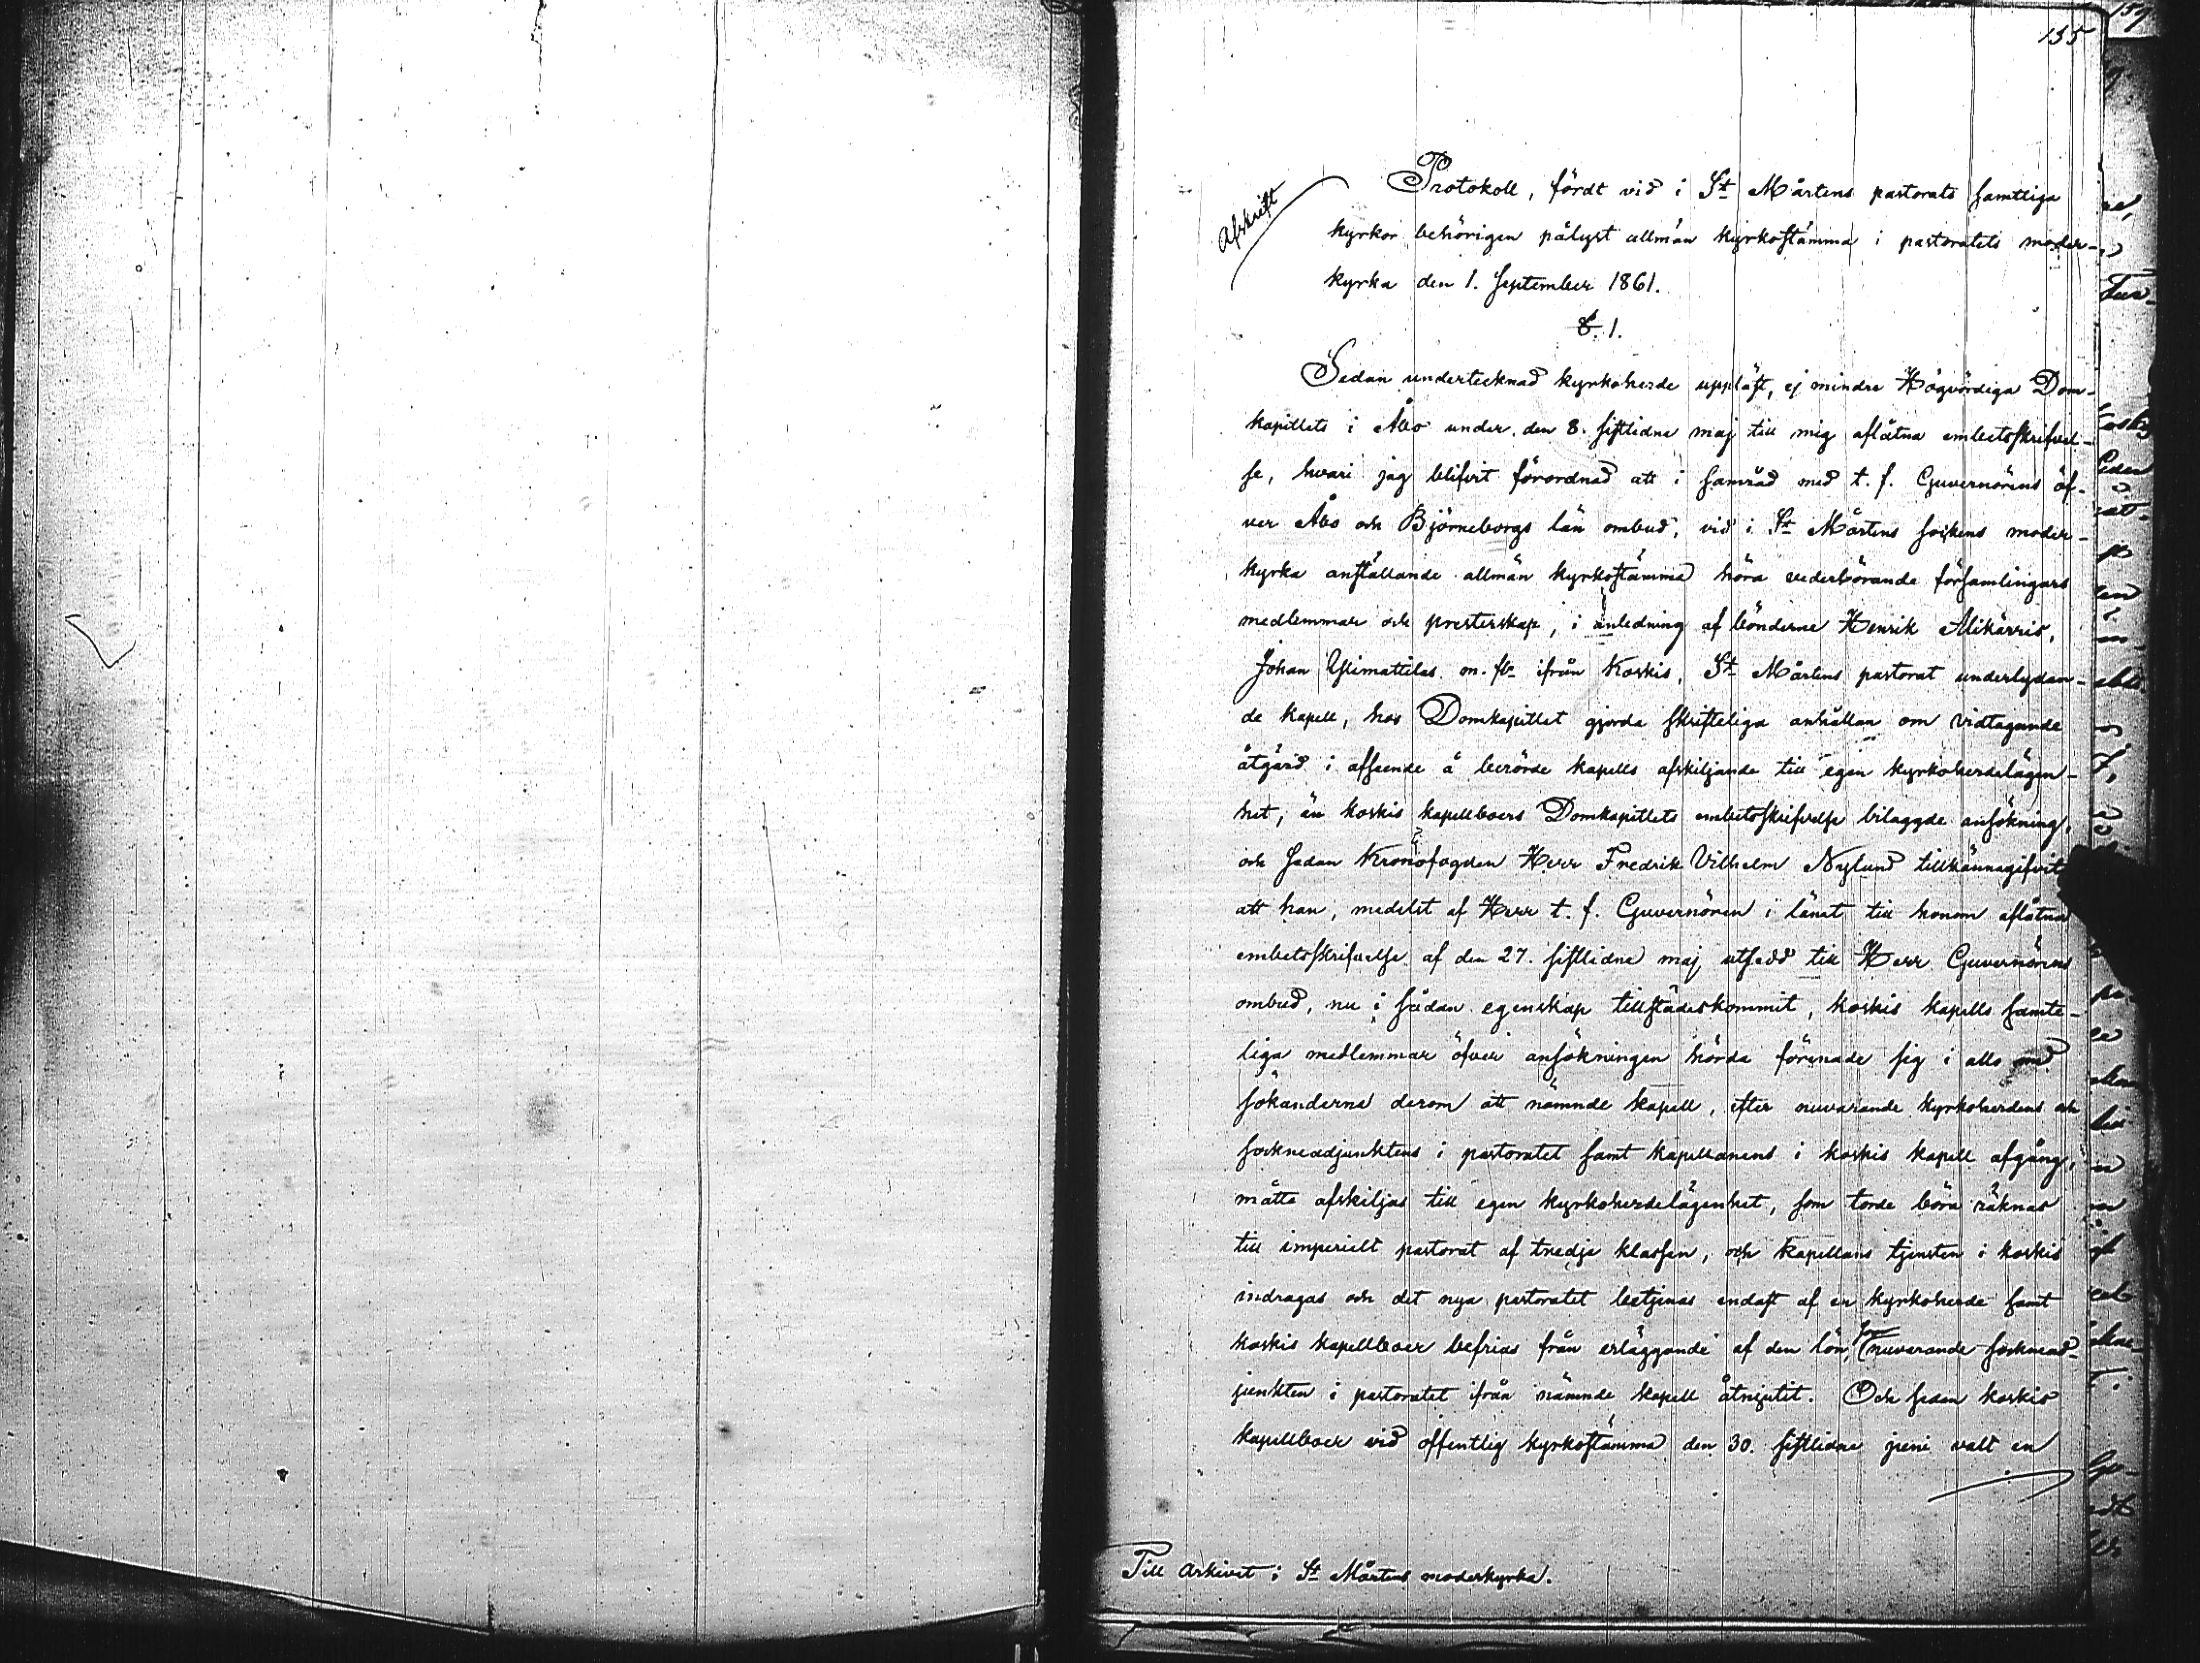 155
Afskrift
Protokoll, fördt vid i St Mårtens pastorats samtliga
kyrkor behörigen pålyst allmän kyrkostämma i pastoratets moder-
kyrka den 1. September 1861.
§. 1.
Sedan undertecknad kyrkoherde uppläst, ej mindre Högvördiga Dom-
kapitlets i Åbo under den 8. sistlidne maj till mig aflåtna embetsskrifvel-
se, hvari jag blifvit förordnad att i samråd med t. f. Guvernörens öf-
ver Åbo och Björneborgs län ombud, vid i St Mårtens sockens moder-
kyrka anställande allmän kyrkostämma höra vederbörande församlingars
medlemmar och presterskap, i anledning af bönderne Henrik Alikärris,
Johan Ylimattilas m. fl. ifrån Koskis, St Mårtens pastorat underlydan-
de kapell, hos Domkapitlet gjorda skrifteliga anhållan om vidtagande
åtgärd i afseende å berörde kapells afskiljande till egen kyrkoherdelägen-
het, än koskis kapellboers Domkapitlets embetsskrifvelse bilaggde ansökning,
och sedan Kronofogden Herr Fredrik Vilhelm Nylund tillkännagifvit
att han, medelst af Herr t. f. Guvernören i länet till honom aflåtna
embetsskrifvelse af den 27. sistlidne maj utsedd till Herr Guvernörens
ombud, nu i sådan egenskap tillstädeskommit, koskis kapells samte-
liga medlemmar öfver ansökningen hörda förenade sig i allo med
sökanderne derom att nämnde kapell, efter nuvarande kyrkoherdens och
sockneadjunktens i pastoratet samt kapellanens i koskis kapell afgång,
måtte afskiljas till egen kyrkoherdelägenhet, som torde böra räknas
till imperielt pastorat af tredje klassen, och kapellans tjensten i koskis
indragas och det nya pastoratet betjenas endast af en kyrkoherde samt
koskis kapellboer befrias från erläggande af den lön, nuvarande socknead-
junkten i pastoratet ifrån nämnde kapell åtnjutit. Och sedan koskis
kapellboer vid offentlig kyrkostämma den 30. sistlidne juni valt en
Till arkivet i St Mårtens moderkyrka.